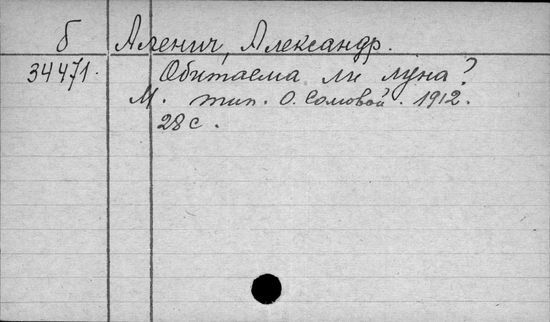 б Аленич, Александр.
34471. Обитаема ли луна?
М. тип. О. Сомовой. 1912.
28 с.